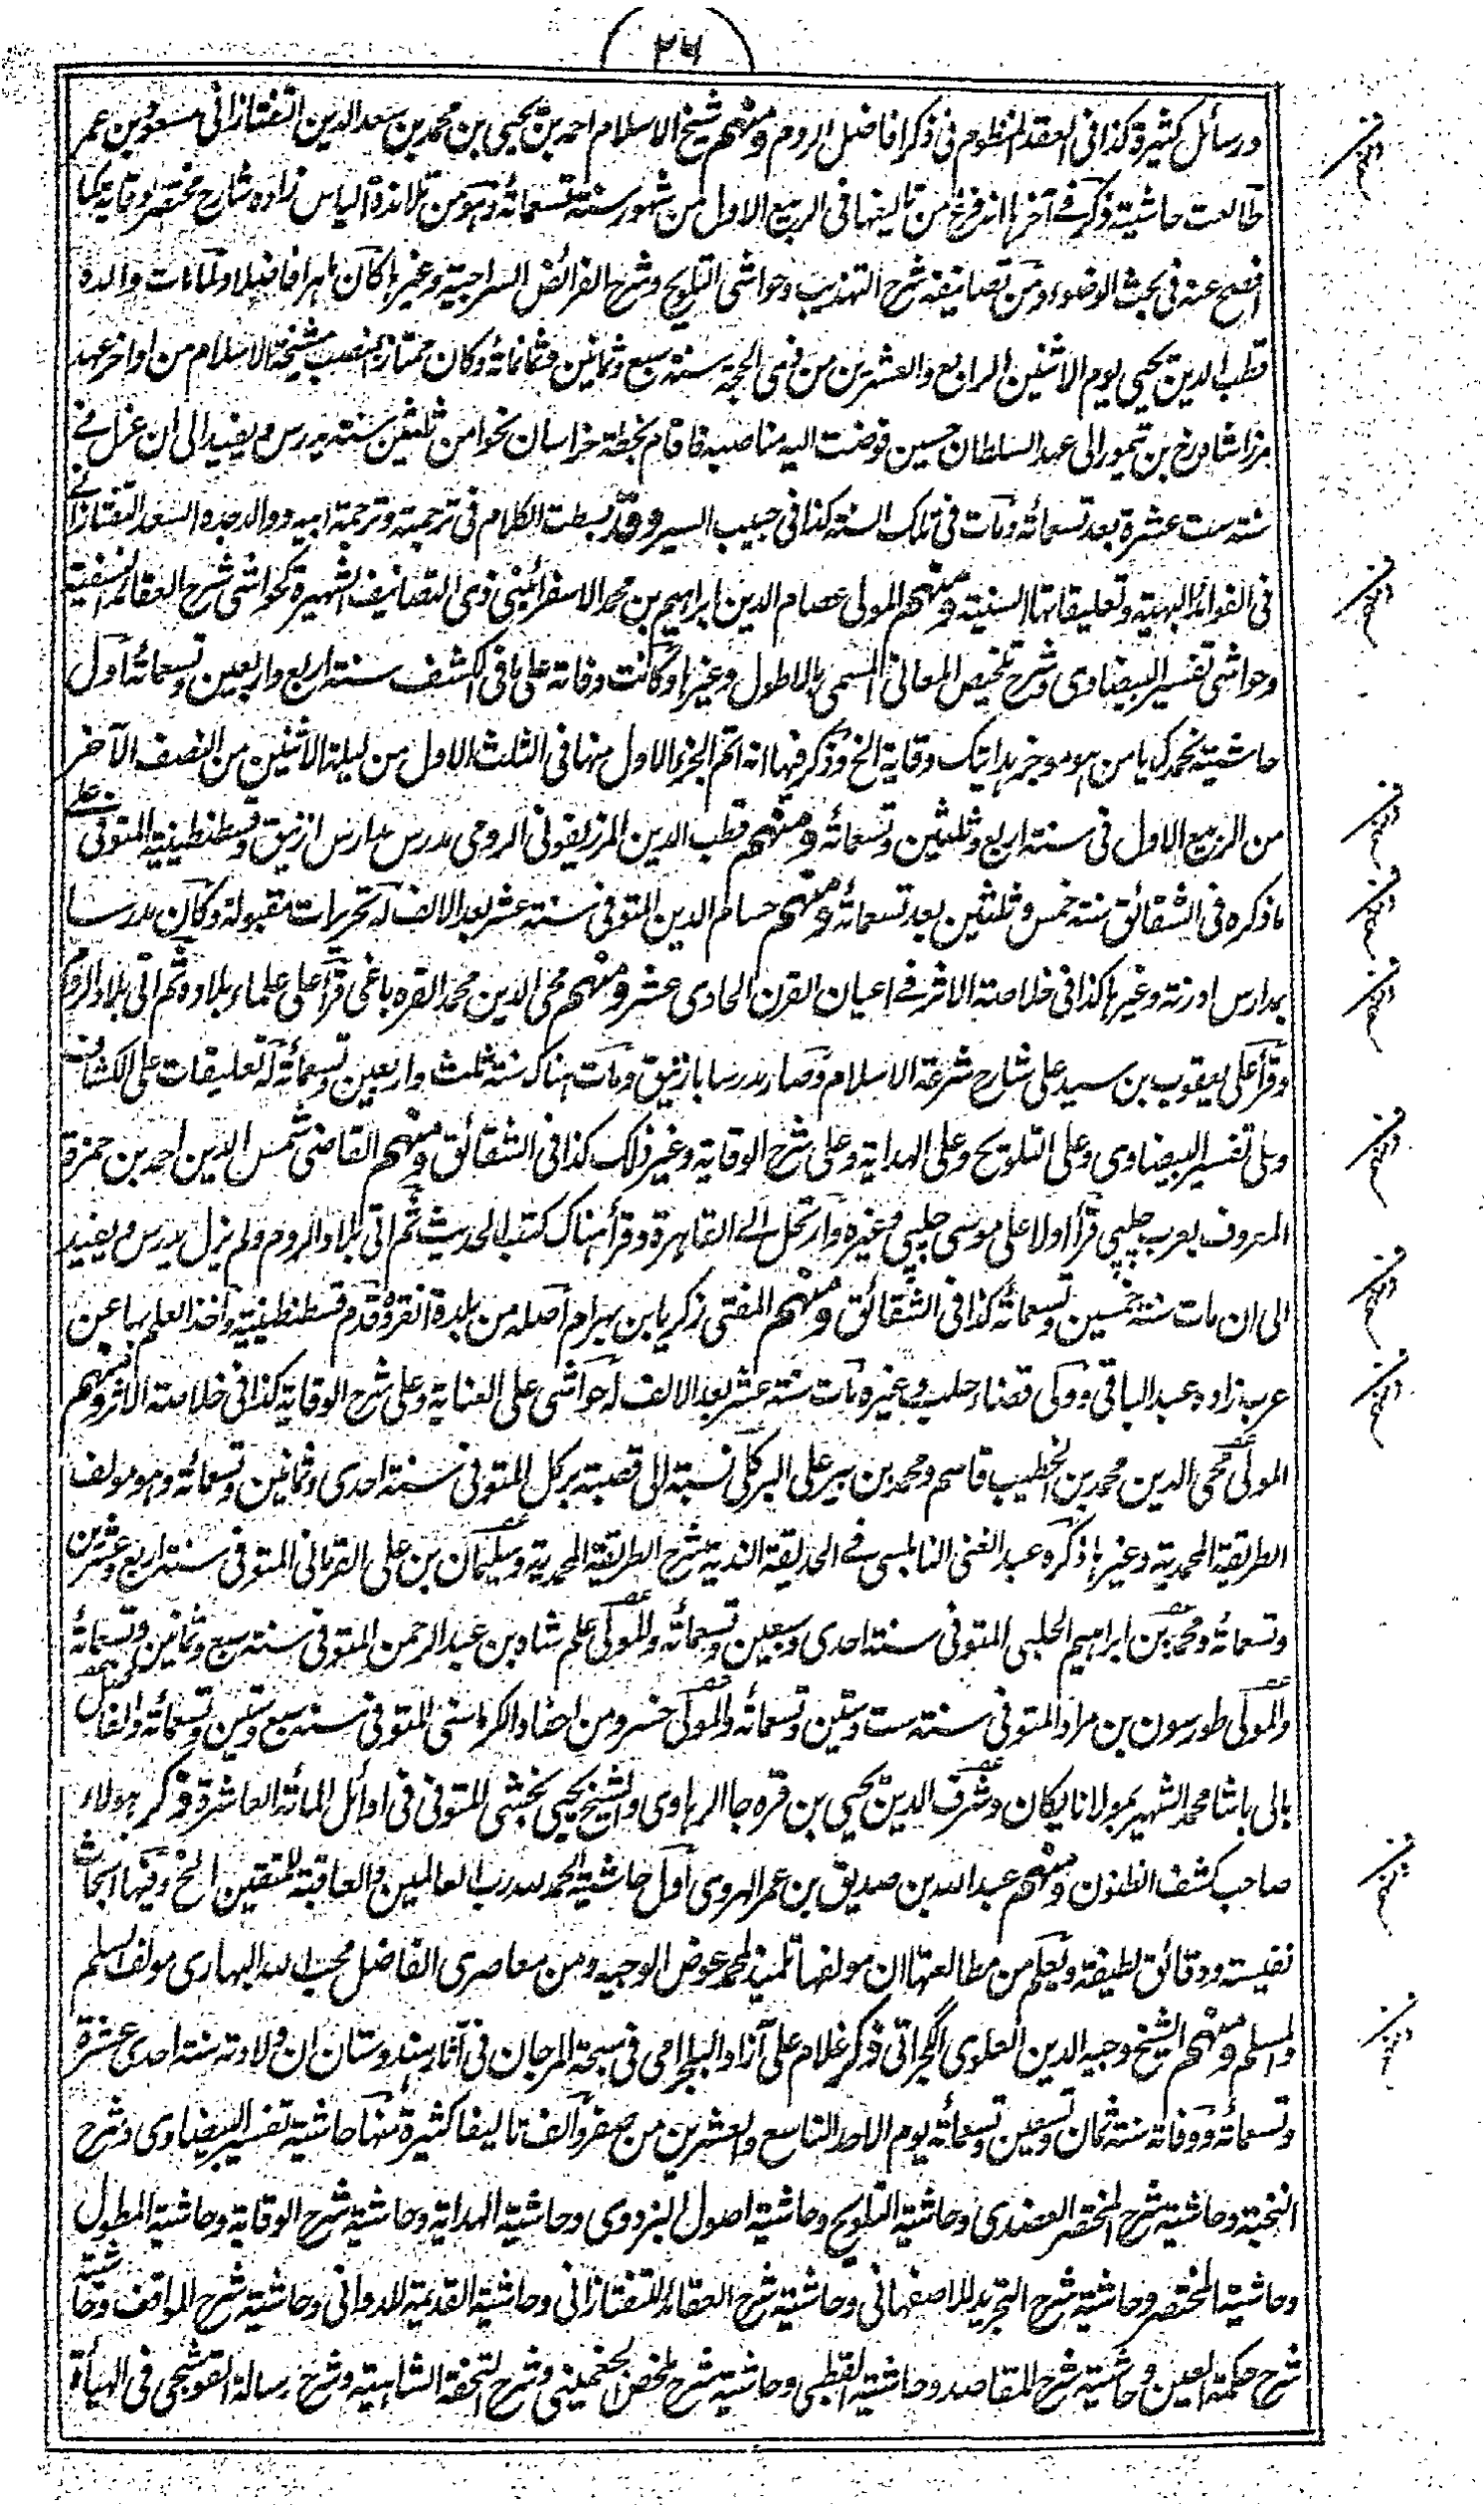 ٢٦
ورسائل كثيرة كذا فى العقد المنظوم فى ذكر افاضل الروم ومنهم شيخ الاسلام احمد بن يحيى بن محمد بن سعد الدين التفتازانى مسعود بن عمر
طالعت حاشيته ذكر فے آخرها انه فرغ من تاليفها فى الربيع الاول من شهور سنة تسعمائة وهو من تلامذة الياس زاده شارح مختصر الوقاية كما
افصح عنه فى بحث الوضوء ومن تصانيفه شرح التهذيب وحواشى التلويح وشرح الفرائض السراجية وغيرها كان ماهرا فاضلا ولما مات والده
قطب الدين يحيى يوم الاثنين الرابع والعشرين من ذى الحجة سنة سبع وثمانين وثمانمائة وكان ممتازا بمنصب مشيخة الاسلام من اواخر عهد
مرزا شاهرخ بن تيمور الى عهد السلطان حسين فوضت اليه مناصبه فاقام بخطة خراسان نحوا من ثلثين سنة يدرس ويفيد الى ان عزل فے
سنة ست عشرة بعد تسعمائة ومات فى تلك السنة كذا فى حبيب السير وقد بسطت الكلام فى ترجمته وترجمة ابيه ووالد جده السعد التفتازانے
فى الفوائد البهية وتعليقاتها السنية ومنهم المولى عصام الدين ابراهيم بن محمد الاسفرائينى ذى التصانيف الشهيرة كحواشى شرح العقائد النسفية
وحواشى تفسير البيضاوى وشرح تلخيص المعانى المسمى بالاطول وغيرها وكانت وفاته على ما فى الكشف سنة اربع واربعين وتسعمائة اول
حاشيته نحمدك يا من هو موجز هدايتك وقاية الخ وذكر فيها انه اتم الجزء الاول منها فى الثلث الاول من ليلة الاثنين من النصف الآخر
من الربيع الاول فى سنة اربع وثلثين وتسعمائة ومنهم قطب الدين المرزيفونى الرومى مدرس مدارس ازنيق وقسطنطينية المتوفى على
ما ذكره فى الشقائق سنة خمس وثلثين بعد تسعمائة ومنهم حسام الدين المتوفى سنة عشر بعد الالف له تحريرات مقبولة وكان مدرسا
بمدارس اورنه وغيرها كذا فى خلاصة الاثر فے اعيان القرن الحادى عشر ومنهم محى الدين محمد القره باغى قرأ على علماء بلاده ثم اتى بلاد الروم
وقرأ على يعقوب بن سيد على شارح شرعة الاسلام وصار مدرسا بازنيق ومات هناك سنة ثلث واربعين وتسعمائة له تعليقات على الكشاف
وعلى تفسير البيضاوى وعلى التلويح وعلى الهداية وعلى شرح الوقاية وغير ذلك كذا فى الشقائق ومنهم القاضى شمس الدين احمد بن حمزة
المعروف بعرب چلپى قرأ اولا على موسى چلپى وغيره وارتحل الے القاهرة وقرأ هناك كتب الحديث ثم اتى بلاد الروم ولم يزل يدرس ويفيد
الى ان مات سنة خمسين وتسعمائة كذا فى الشقائق ومنهم المفتى زكريا بن بهرام اصله من بلدة انقره وقدم قسطنطينية واخذ العلم بها عن
عرب زاده عبد الباقى وولى قضاء حلب وغيره مات سنة عشر بعد الالف له حواشى على العناية وعلى شرح الوقاية كذا فى خلاصة الاثر ومنهم
المولى محى الدين محمد بن الخطيب قاسم ومحمد بن پير على البركلى نسبة الى قصبة بركل المتوفى سنة احدى وثمانين وتسعمائة وهو مولف
الطريقة المحمدية وغيرها ذكره عبد الغنى النابلسى فے الحديقة الندية شرح الطريقة المحمدية وسليمان بن على القرمانى المتوفى سنة اربع وعشرين
وتسعمائة ومحمد بن ابراهيم الحلبى المتوفى سنة احدى وسبعين وتسعمائة والمولى علم شاه بن عبد الرحمن المتوفى سنة سبع وثمانين وتسعمائة
والمولى طورسون بن مراد المتوفى سنة ست وستين وتسعمائة والمولى خسرو من احفاد الكرماستى المتوفى سنة سبع وستين وتسعمائة والفاضل
بالى باشا محمد الشهير بمولانا يكان وشرف الدين يحيى بن قره جا الرهاوى والشيخ يحيى بخشى المتوفى فى اوائل المائة العاشرة ذكر هولاء
صاحب كشف الظنون ومنهم عبد الله بن صديق بن عمر الهروى اول حاشيته الحمد لله رب العالمين والعاقبة للمتقين الخ وفيها ابحاث
نفيسة ودقائق لطيفة ويعلم من مطالعتها ان مولفها تلميذ لمحمد عوض الوجيه ومن معاصرى الفاضل محب الله البهارى مولف السلم
والمسلم ومنهم الشيخ وجيه الدين العلوى الگجراتى ذكر غلام على آزاد البلجرامى فى سبحة المرجان فى آثار هندوستان ان ولادته سنة احدى عشرة
وتسعمائة ووفاته سنة ثمان وتسعين وتسعمائة يوم الاحد التاسع والعشرين من صفر والف تاليفا كثيرة منها حاشية تفسير البيضاوى وشرح
النخبة وحاشية شرح المختصر العضدى وحاشية التلويح وحاشية اصول البزدوى وحاشية الهداية وحاشية شرح الوقاية وحاشية المطول
وحاشية المختصر وحاشية شرح التجريد للاصفهانى وحاشية شرح العقائد للتفتازانى وحاشية القديمة للدوانى وحاشية شرح المواقف وحاشية
شرح حكمة العين وحاشية شرح المقاصد وحاشية القطبى وحاشية شرح ملخص الجغمينى وشرح التحفة الشاهية وشرح رسالة القوشجى فى الهيأة